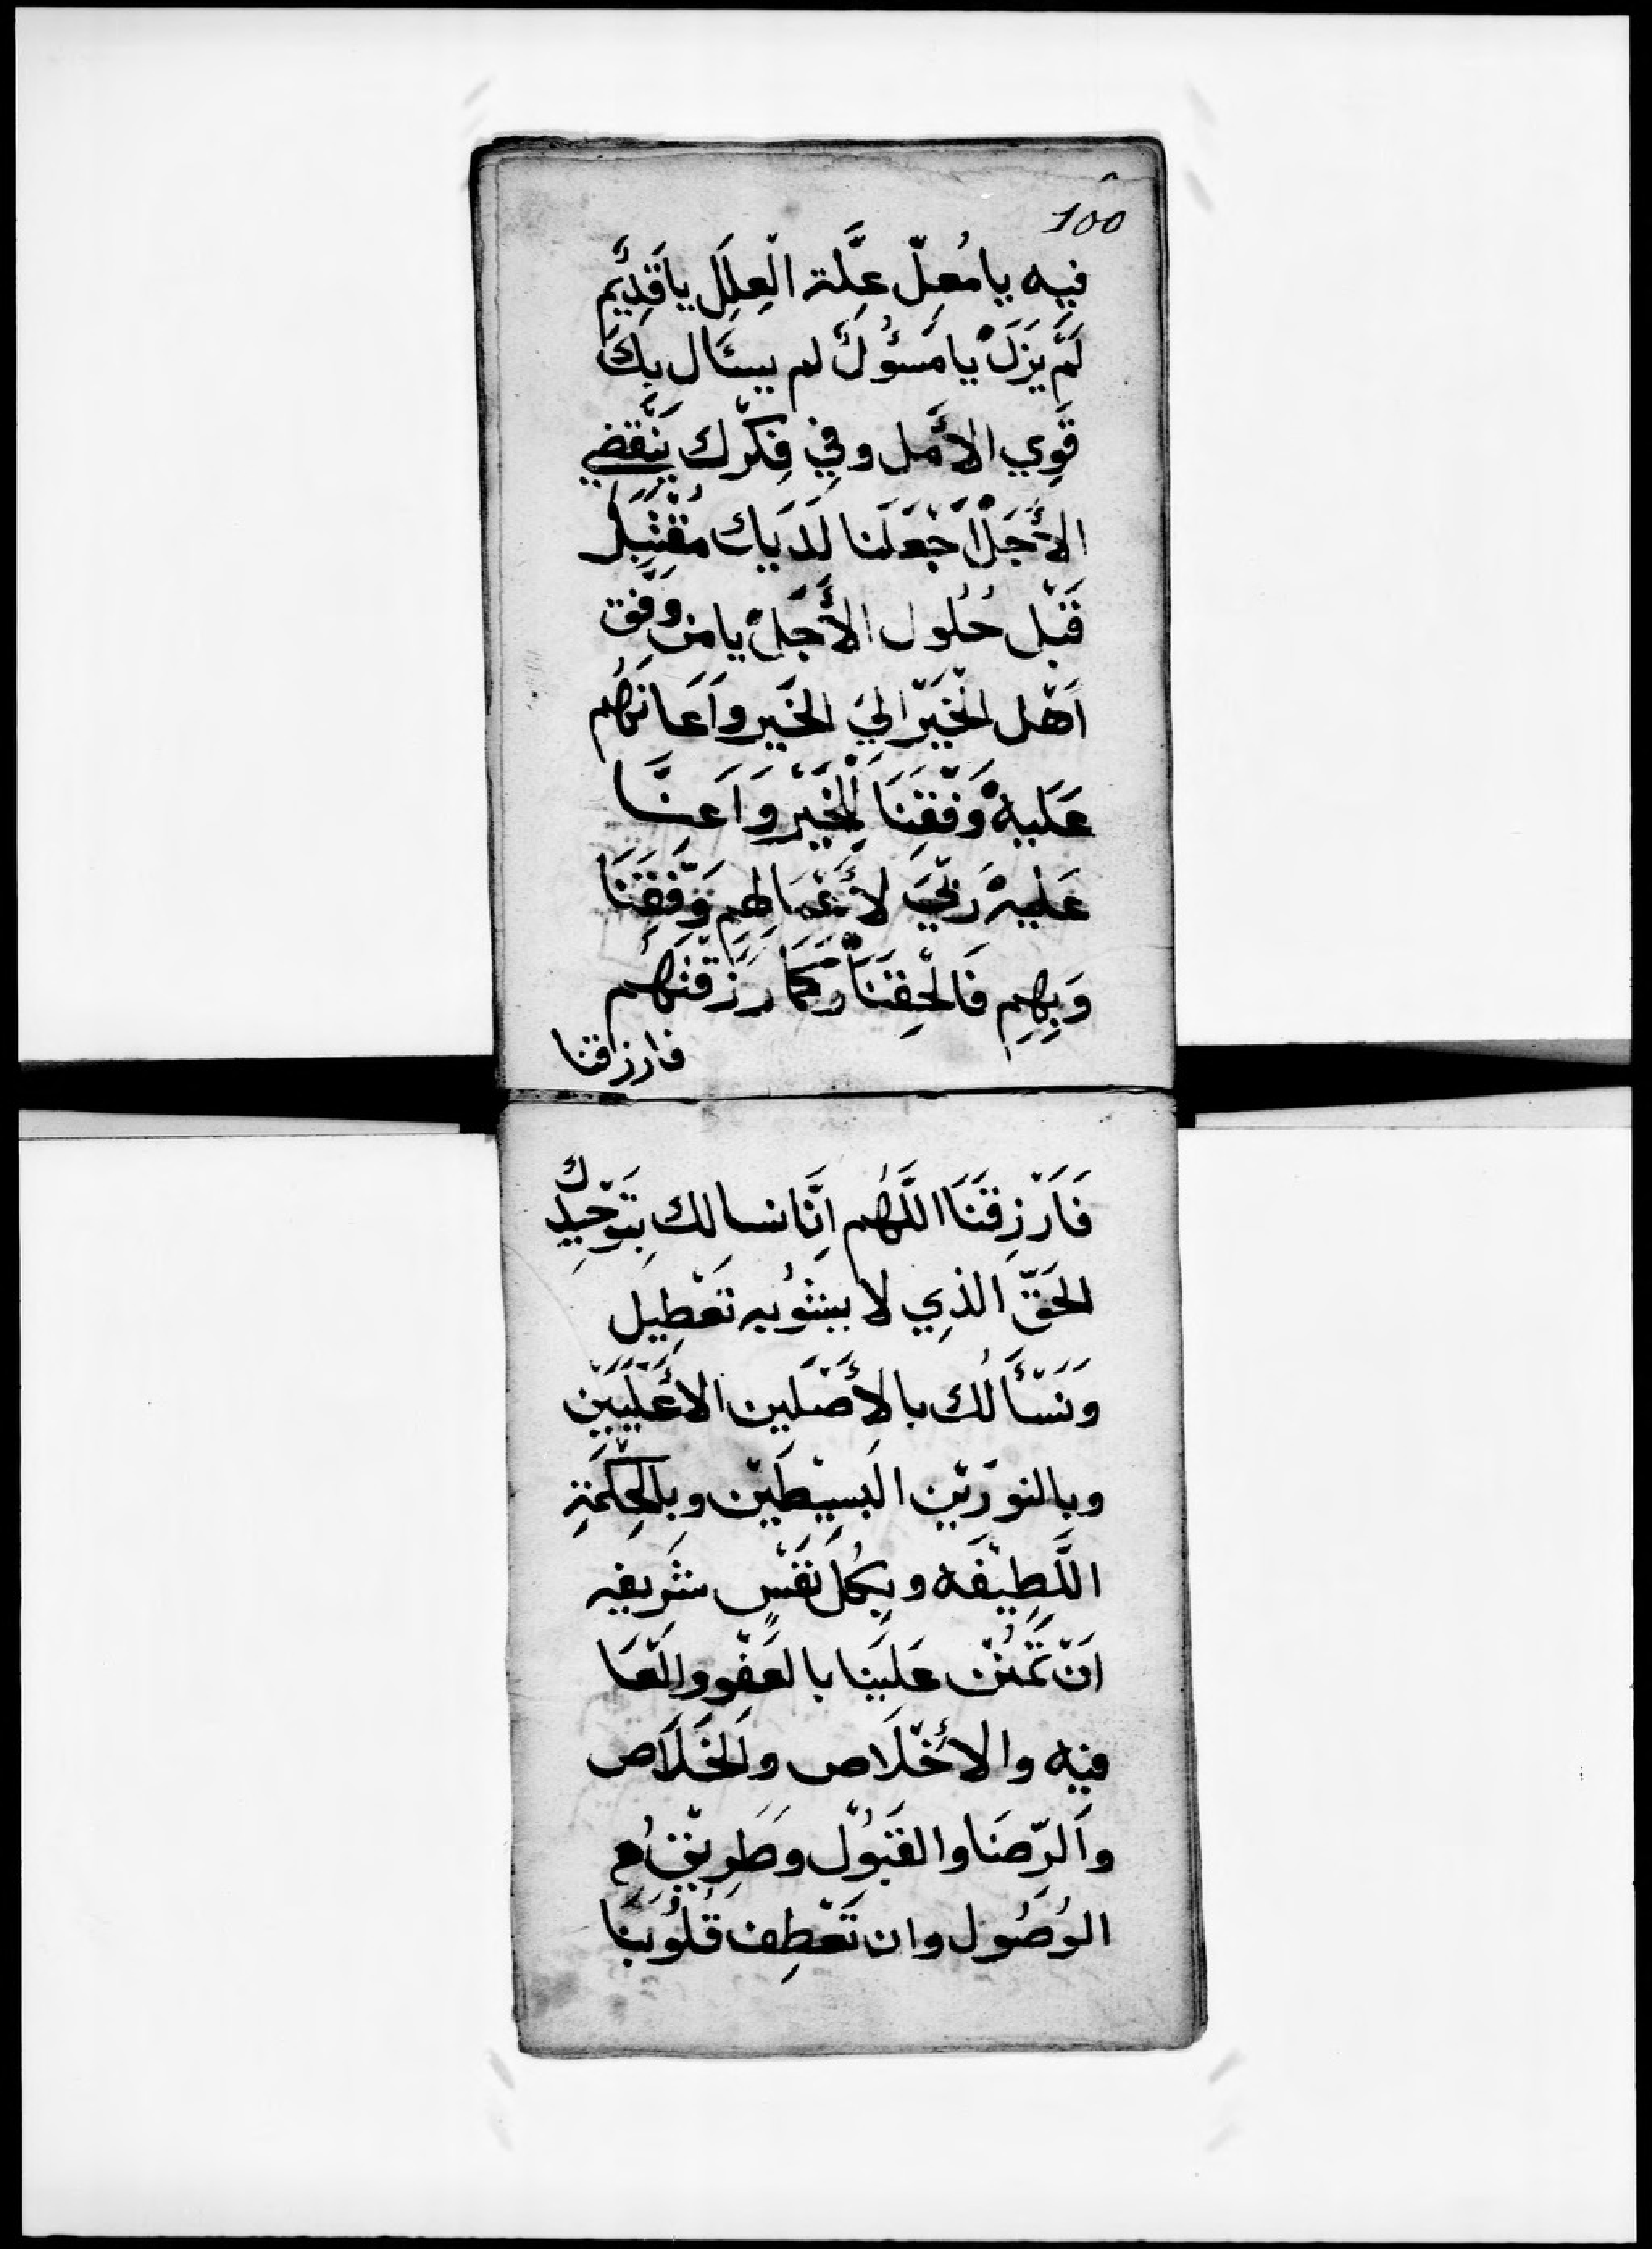 100
فيه يا مُعِلّ عِلَّة الْعِلَل يا قَدِيْم
لَمْ يَزَلْ يا مَسؤُولْ لم يسئال بِكَ
قَوِي الأمَل وفي فِكْرك يَنْقَضي
الأَجَلْ اجْعَلَنا لَدَيك مُقْتَبَلْ
قَبْل حُلُول الأَجَلْ يا من وفّق
اَهْل الخَيْر اليَ الخَير وَاَعَانَهُم
عَلَيهْ وَفِّقِنَا لِلْخَيْر وَاَعِنَّا
عَليهْ رَبِّيَ لأَعْمَالِهِم وَفِّقِنَا
وَبِهِم فَالْحِقَنَا وكَمَا رَزَقْتَهُم
فارزقنا
فَارْزِقَنَا اللَّهُم اِنَّا نسالك بِتَوْحِيدِك
الحَقّ الذِي لا يشُوبه تَعْطِيل
وَنَسْأَلُك بالأَصْلَين الأَعْلَيَيْن
وبالنورَيْن البَسِيْطَيْن وبالحِكْمَةِ
اللَّطِيْفَه وبِكُل نَفْسٍ شَرِيفه
اَنْ تَمْنُن عَلَينا بالعَفْو والْعَا
فيه والأخْلَاص والخَلَاص
والرّضَا والقَبُوْل وطَرِيْقِ
الوُصُول وان تَعْطِف قُلُوبَنَا